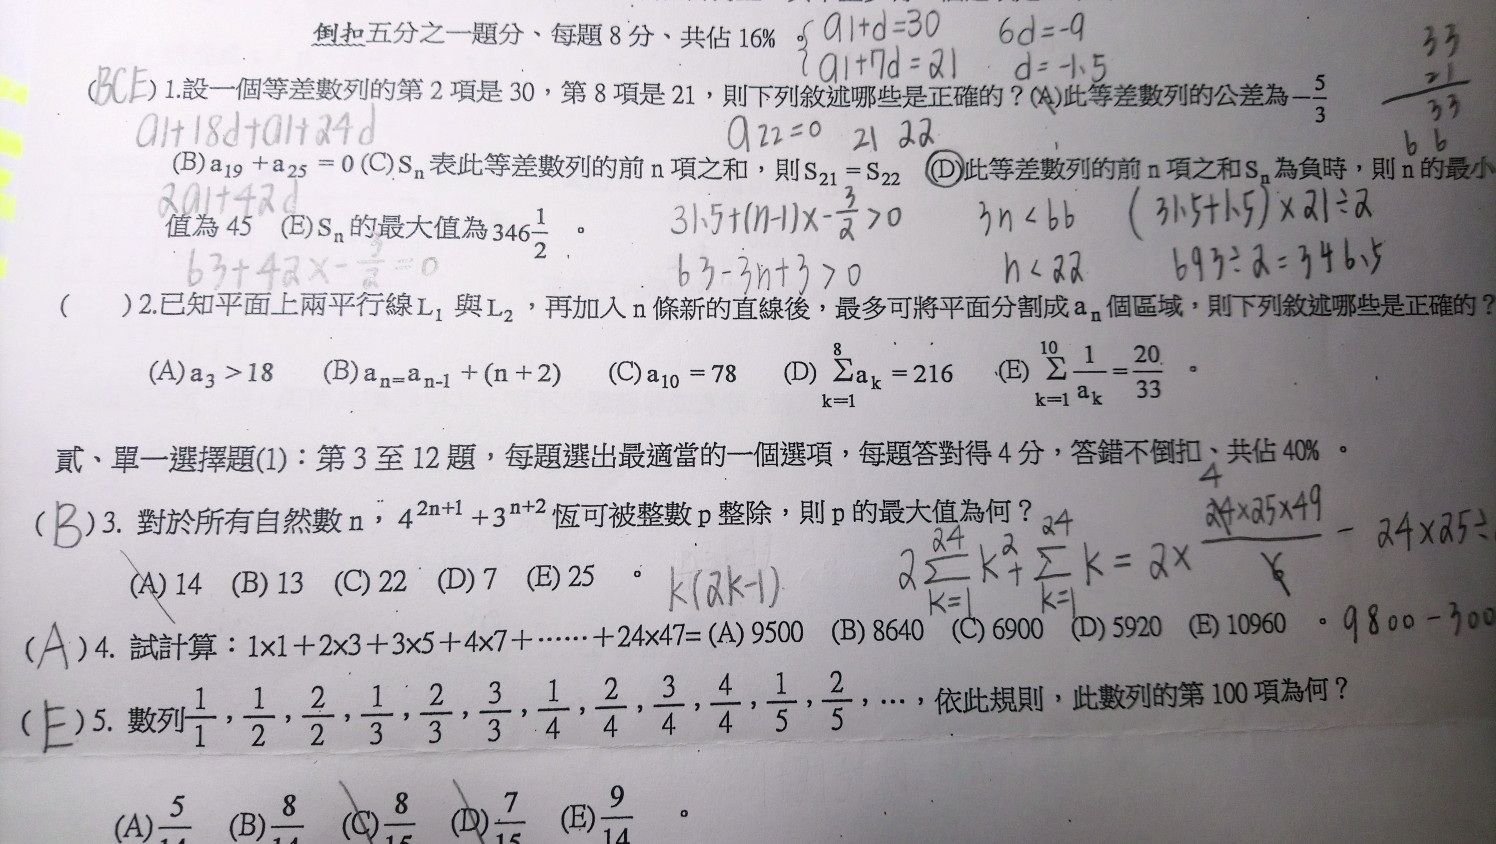 倒扣五分之一題分、每題 8 分、共佔 16%。
{ a1+d=30
a1+7d=21
6d=-9
d=-1.5
33
21
33
66
(BCE) 1.設一個等差數列的第 2 項是 30,第 8 項是 21,則下列敘述哪些是正確的?(A)此等差數列的公差為 -5/3
a1+18d+a1+24d
a22=0 21 22
(B) a19 + a25 = 0 (C) Sn 表此等差數列的前 n 項之和,則 S21 = S22 (D)此等差數列的前 n 項之和 Sn 為負時,則 n 的最小
2a1+42d
值為 45 (E) Sn 的最大值為 346 1/2 。
31.5+(n-1)×-3/2>0
3n<66
(31.5+1.5)×21÷2
63+42×-3/2=0
63-3n+3>0
n<22
693÷2=346.5
( )2.已知平面上兩平行線 L1 與 L2,再加入 n 條新的直線後,最多可將平面分割成 an 個區域,則下列敘述哪些是正確的?
(A) a3 > 18 (B) an=an-1 + (n + 2) (C) a10 = 78 (D) 8 Σ k=1 ak = 216 (E) 10 Σ k=1 1/ak = 20/33 。
貳、單一選擇題(1):第 3 至 12 題,每題選出最適當的一個選項,每題答對得 4 分,答錯不倒扣、共佔 40% 。
(B) 3. 對於所有自然數 n,4^2n+1 + 3^n+2 恆可被整數 p 整除,則 p 的最大值為何?
(A) 14 (B) 13 (C) 22 (D) 7 (E) 25 。
k(2k-1)
2 24 Σ k=1 k²+ 24 Σ k=1 k = 2× 4 24×25×49/6 - 24×25÷
(A) 4. 試計算:1x1+2x3+3x5+4x7+……+24x47= (A) 9500 (B) 8640 (C) 6900 (D) 5920 (E) 10960 。
9800-300
(E) 5. 數列 1/1, 1/2, 2/2, 1/3, 2/3, 3/3, 1/4, 2/4, 3/4, 4/4, 1/5, 2/5, …,依此規則,此數列的第 100 項為何?
(A) 5/14 (B) 8/14 (C) 8/15 (D) 7/15 (E) 9/14 。